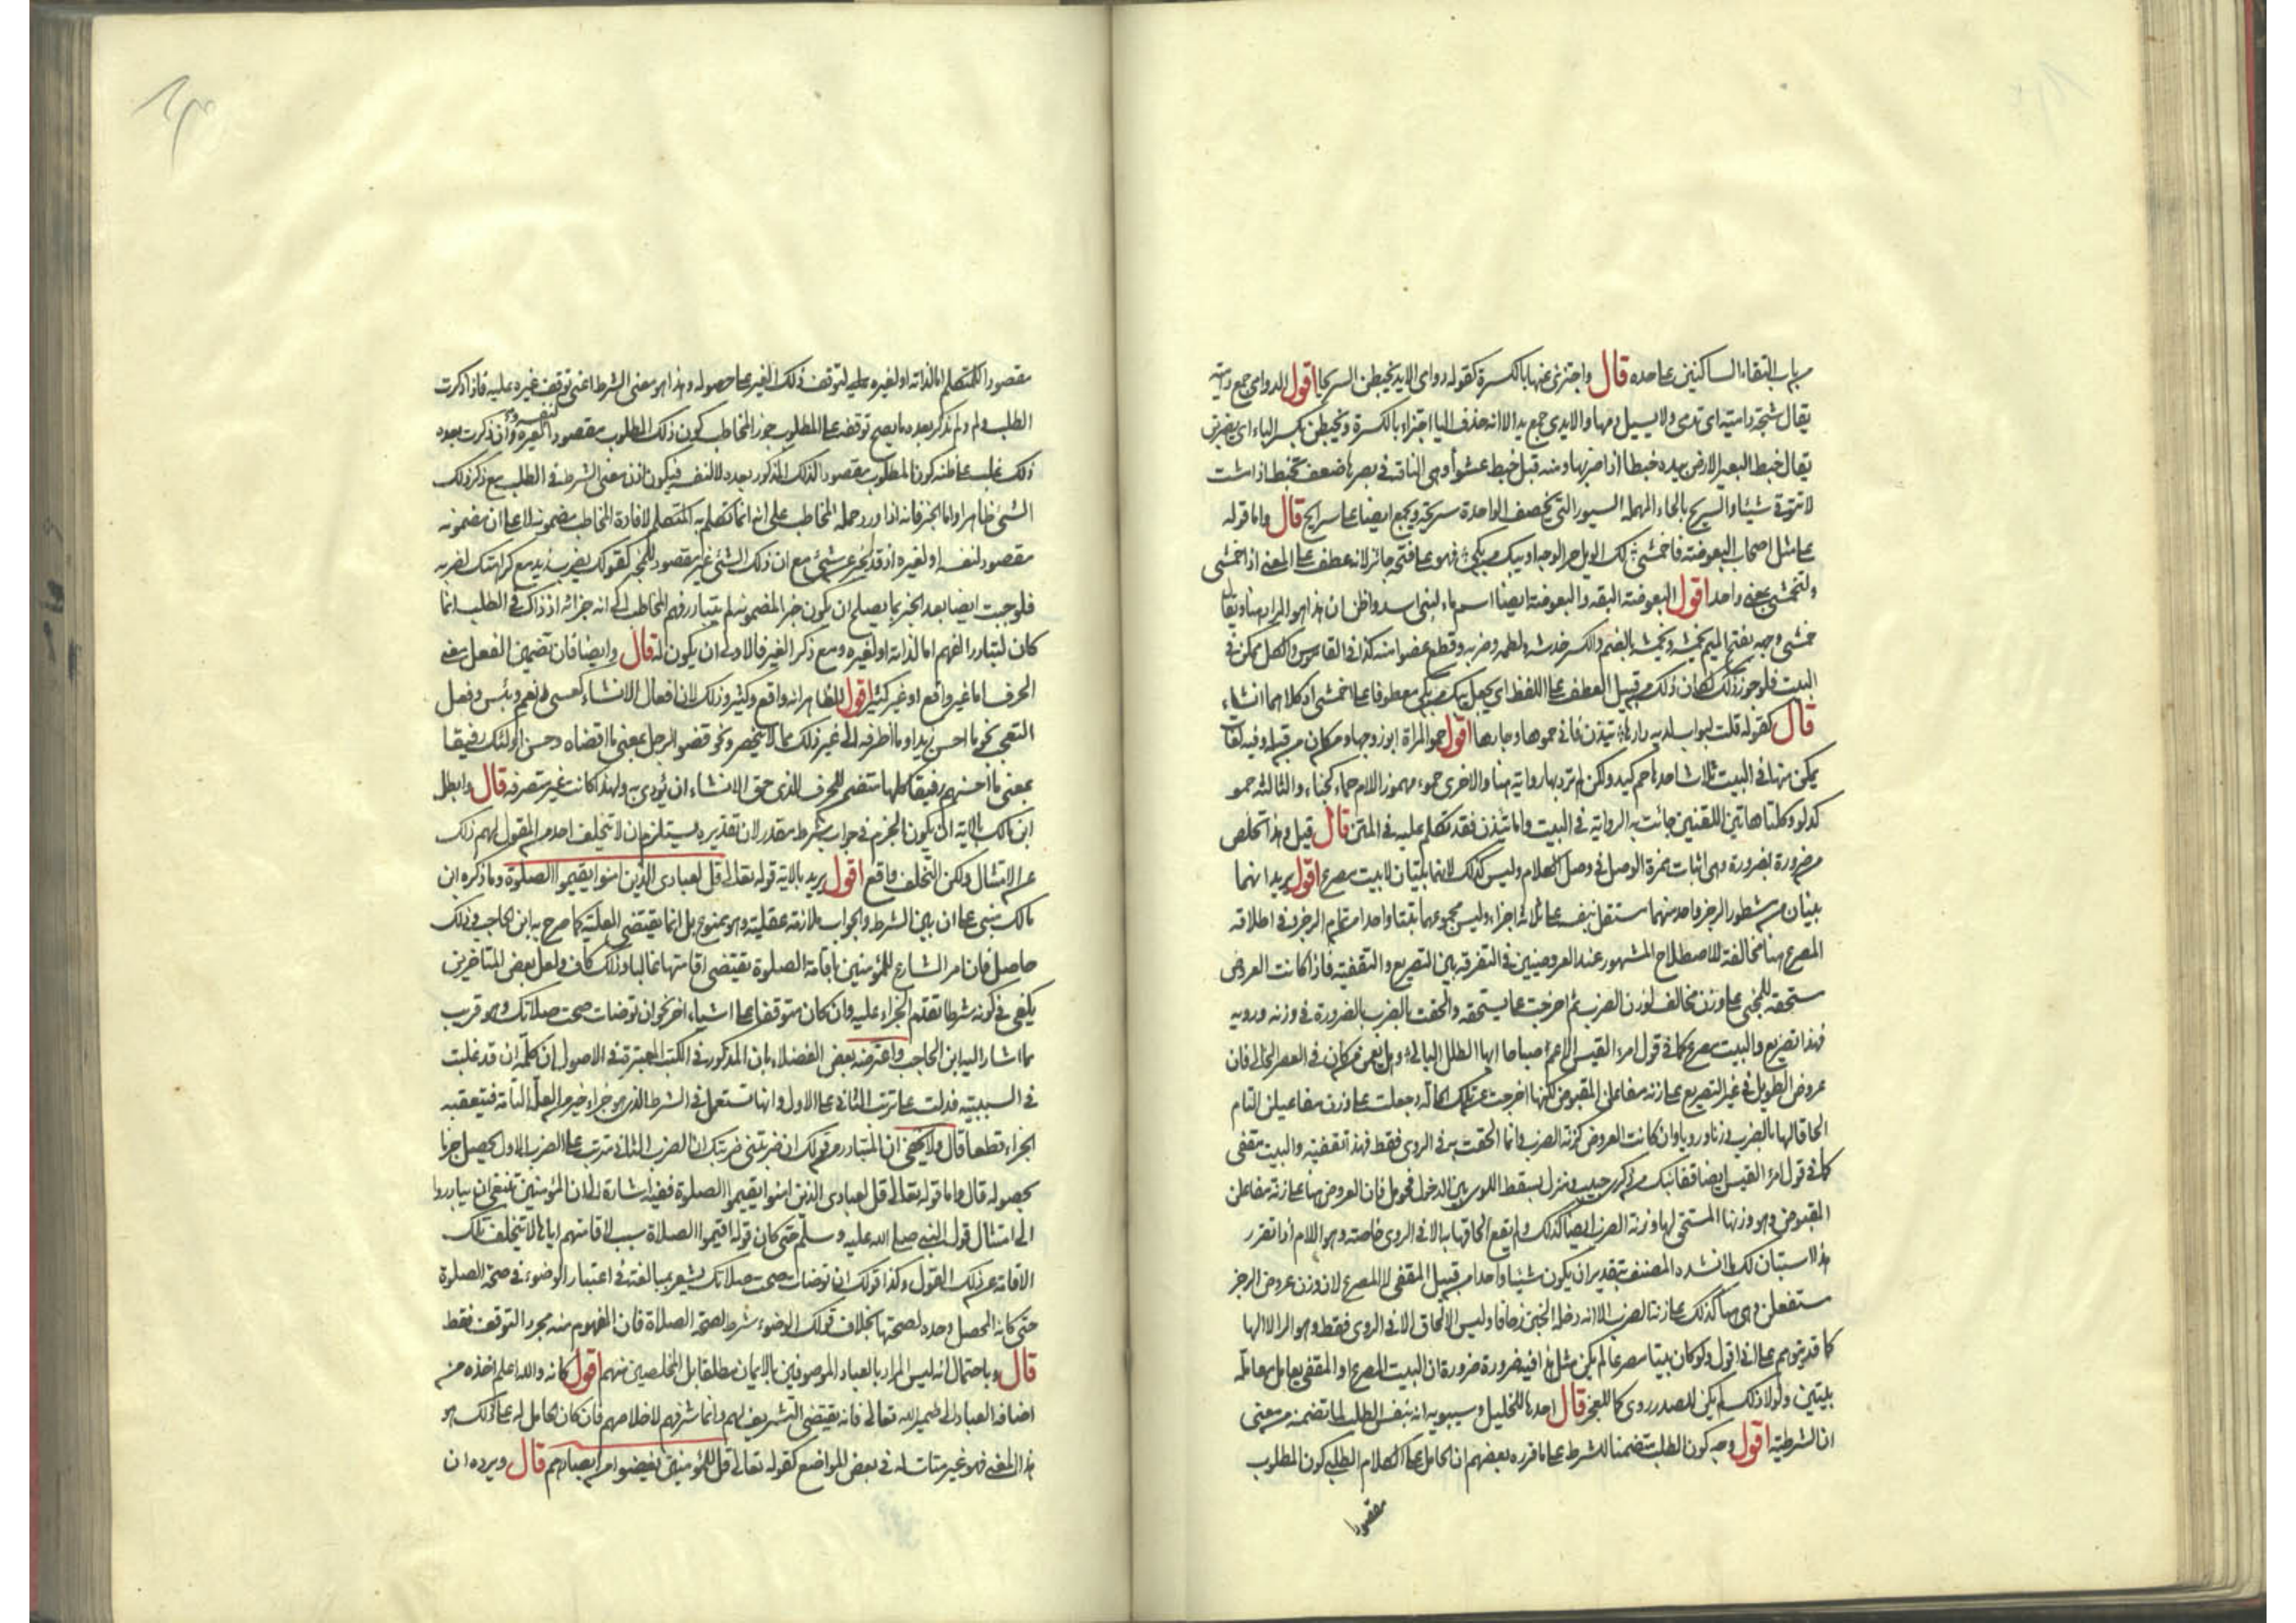 من باب التقاء الساكنين على حده قال واجتزئ عنها بالكسرة كقوله دوامى الايد يخبطن السريحا اقول الدوامى جمع دامية
يقال شجة دامية اى تدمى ولا يسيل دمها والايدى جمع يد الا انه حذف اليا اجتزاء بالكسرة ويخبطن بكسر الباء اى يضربن
يقال خبط البعير الارض بيده خبطا اذا ضربها ومنه قيل خبط عشوأ وهى الناقة فى بصرها ضعف تخبط اذا مشت
لا تتوقى شيئا والسريح بالحاء المهملة السيور التى يخصف الواحدة سريحة ويجمع ايضا على سرايح قال واما قوله
على مثل اصحاب البعوضة فاخمشى لك الويل حر الوجه او يبك من بكى فهو على قبحه جائز لانه عطف على المعنى اذ اخمشى
ولتخمشى بمعنى واحد اقول البعوضة البقة والبعوضة ايضا اسم ماء لبنى اسد واظن ان هذا هو المراد هنا ويقال
خمش وجهه بفتح الميم يخمشه ويخمشه بالضم والكسر خدشه ولطمه وضربه وقطع عضوا منه كذا فى القاموس والكل ممكن فى
البيت فلو جوز ذلك لكان ذلك من قبيل العطف على اللفظ اى يجعل يبك من بكى معطوفا على اخمشى او كلاهما انشاء
قال كقوله قلت لبواب لديه دارها تيذن فانى حموها وجارها اقول حمو المراة ابو زوجها ومن كان من قبله وفيه لغات
يمكن منها فى البيت ثلاث احداها حم كيد ولكن لم ترد بها رواية هنا والاخرى حموء مهموز اللام حماء كخباء والثالثة حمو
كدلو وكلتا هاتين اللغتين جائت به الرواية فى البيت واما تئذن فقد تكلم عليه فى المتن قال قيل وهذا تخلص
من ضرورة بضرورة وهى اثبات همزة الوصل فى وصل الكلام وليس كذلك لانهما بيتان لا بيت مصرع اقول يريد انهما
بيتان من مشطور الرجز واحد منهما مستقل بنفسه على ثلاثة اجزاء وليس مجموعهما بيتا واحدا من تام الرجز وفى اطلاقه
المصرع هنا مخالفة للاصطلاح المشهور عند العروضيين فى التفرقة بين التصريع والتقفية فاذا كانت العروض
مستحقة للمجئ على وزن مخالف لوزن الضرب ثم اخرجت عما يستحقه والحقت بالضرب بالضرورة فى وزنه ورويه
فهذا تصريع والبيت مصرع كما فى قول امرء القيس الا عم صباحا ايها الطلل البالى وهل يعمن من كان فى العصر الخالى فان
عروض الطويل فى غير التصريع على زنة مفاعلن المقبوض لكنها اخرجت عن تلك الحالة وجعلت على وزن مفاعيلن التام
الحاقا لها بالضرب وزنا ورويا وان كانت العروض كزنة الضرب وانما الحقت به فى الروى فقط فهذه تقفية والبيت مقفى
كما فى قول امرء القيس ايضا قفا نبك من ذكرى حبيب ومنزل بسقط اللوى بين الدخول فحومل فان العروض هنا على زنة مفاعلن
المقبوض وهو وزنها المستحق لها وزنة الضرب ايضا كذلك ولم يقع الحاقها به الا فى الروى خاصة وهو اللام اذا تقرر
هذا استبان لك ان ما انشده المصنف بتقدير ان يكون شيئا واحدا من قبيل المقفى لا المصرع لان وزن عروض الرجز
مستفعلن وهى هنا كذلك على زنة الضرب الا انه دخله الخبن زحافا وليس الالحاق الا فى الروى فقط وهو الراء لا الها
كما قد يتوهم على انى اقول ولو كان بيتا مصرعا لم يكن مثل هذا فيه ضرورة ضرورة ان البيت المصرع او المقفى يعامل معاملة
بيتين ولولا ذلك لم يكن للصدر روى كما للعجز قال احدها للخليل وسيبويه انه بنفس الطلب لما تضمنه من معنى
ان الشرطية اقول وجه كون الطلب متضمنا للشرط على ما قرره بعضهم ان الحامل على الكلام الطلبى كون المطلوب
مقصودا
مقصودا للمتكلم اما لذاته او لغيره لتوقف ذلك الغير على حصوله وهذا هو معنى الشرط اعنى توقف غيره عليه فاذا ذكرت
الطلب ولم تذكر بعده ما يصح توقفه على المطلوب جوز المخاطب كون ذلك المطلوب مقصودا لنفسه ولغيره وان ذكرت بعده
ذلك غلب على ظنه كون المطلوب مقصودا لذلك المذكور بعده لا لنفسه فيكون اذن معنى الشرط فى الطلب مع ذكر ذلك
الشئ ظاهرا واما الخبر فانه اذا ورد حمله المخاطب على انه انما تكلم به المتكلم لافادة المخاطب مضمونه لا على ان مضمونه
مقصود لنفسه او لغيره اذ قد يخبر عن شئ مع ان ذلك الشئ غير مقصود للمخبر كقولك يضرب زيد مع كراهتك لضربه
فلو جئت ايضا بعد الخبر بما يصلح ان يكون جزاء لمضمونه لم يتبادر فهم المخاطب الى انه جزائه اذ ذاك فى الطلب انما
كان لتبادر الفهم اما لذاته او لغيره ومع ذكر الغير فالاولى ان يكون له قال وايضا فان تضمين الفعل معنى
الحرف اما غير واقع او غير كثير اقول الظاهر انه واقع وكثير وذلك لان افعال الانشاء كعسى ونعم وبئس وفعل
التعجب نحو ما احسن زيدا وما اظرفه الى غير ذلك مما لا ينحصر ونحو قضو الرجل بمعنى ما اقضاه وحسن اولئك رفيقا
بمعنى ما احسنهم رفيقا كلها متضمن للحرف الذى حق الانشاء ان يؤدى به ولهذا كانت غير متصرفه قال وابطل
ابن مالك بالاية ان يكون الجزم فى جواب شرط مقدر لان تقديره يستلزم ان لا يتخلف احد من المقول لهم ذلك
عن الامتثال ولكن التخلف واقع اقول يريد بالاية قوله تعالى قل لعبادى الذين امنوا يقيموا الصلوة وما ذكره ابن
مالك مبنى على ان بين الشرط والجواب ملازمة عقلية وهو ممنوع بل انما يقتضى العلية كما صرح به ابن الحاجب وذلك
حاصل فان امر الشارع للمؤمنين باقامة الصلوة يقتضى اقامتها غالبا وذلك كاف ولعل بعض المتاخرين
يكفى فى كونه شرطا تقدم الجزاء عليه وان كان متوقفا على اشياء اخر نحو ان توضات صحت صلاتك وهو قريب
مما اشار اليه ابن الحاجب واعترضه بعض الفضلاء بان المذكور فى الكتب المعتبرة فى الاصول ان كلمة ان قد غلبت
فى السببيه فدلت على ترتب الثانى على الاول وانها تستعمل فى الشرط الذى هو جزاء خير من العلة التامة فيتعقبه
الجزاء قطعا قال ولا يخفى ان المتبادر من قولك ان ضربتنى ضربتك ان الضرب الثانى مترتب على الضرب الاول يحصل جزما
بحصوله قال واما قوله تعالى قل لعبادى الذين امنوا يقيموا الصلوة ففيه اشارة الى ان المؤمنين ينبغى ان يبادروا
الى امتثال قول النبى صلى الله عليه وسلم حتى كان قوله اقيموا الصلاة سبب لاقامتهم اياها لا يتخلف تلك
الاقامة عن ذلك القول وكذا قولك ان توضات صحت صلاتك يشعر بمبالغة فى اعتبار الوضوء فى صحة الصلوة
حتى كانه المحصل وحده لصحتها بخلاف قولك الوضوء شرط لصحة الصلاة فان المفهوم منه مجرد التوقف فقط
قال وباحتمال انه ليس المراد بالعباد الموصوفين بالايمان مطلقا بل المخلصين منهم اقول كانه والله اعلم اخذه من
اضافة العباد الى ضمير الله تعالى فانه يقتضى التشريف لهم وانما شرفهم لاخلاصهم فان كان الحامل له على ذلك هو
هذا المعنى فهو غير متات له فى بعض المواضع كقوله تعالى قل للمؤمنين يغضوا من ابصارهم قال ويرده ان